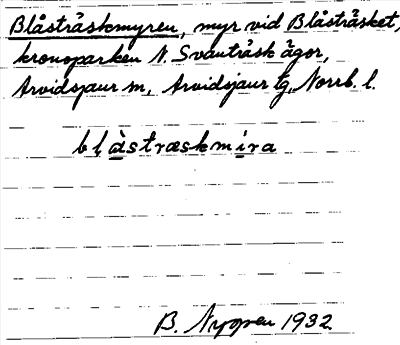 Blåsträskmyren, myr vid Blåsträsket,
kronoparken N. Svanträsk ägor,
Arvidsjaur sn, Arvidsjaur tg, Norrb. l.
blàstræskmira
B. Nyppen 1932